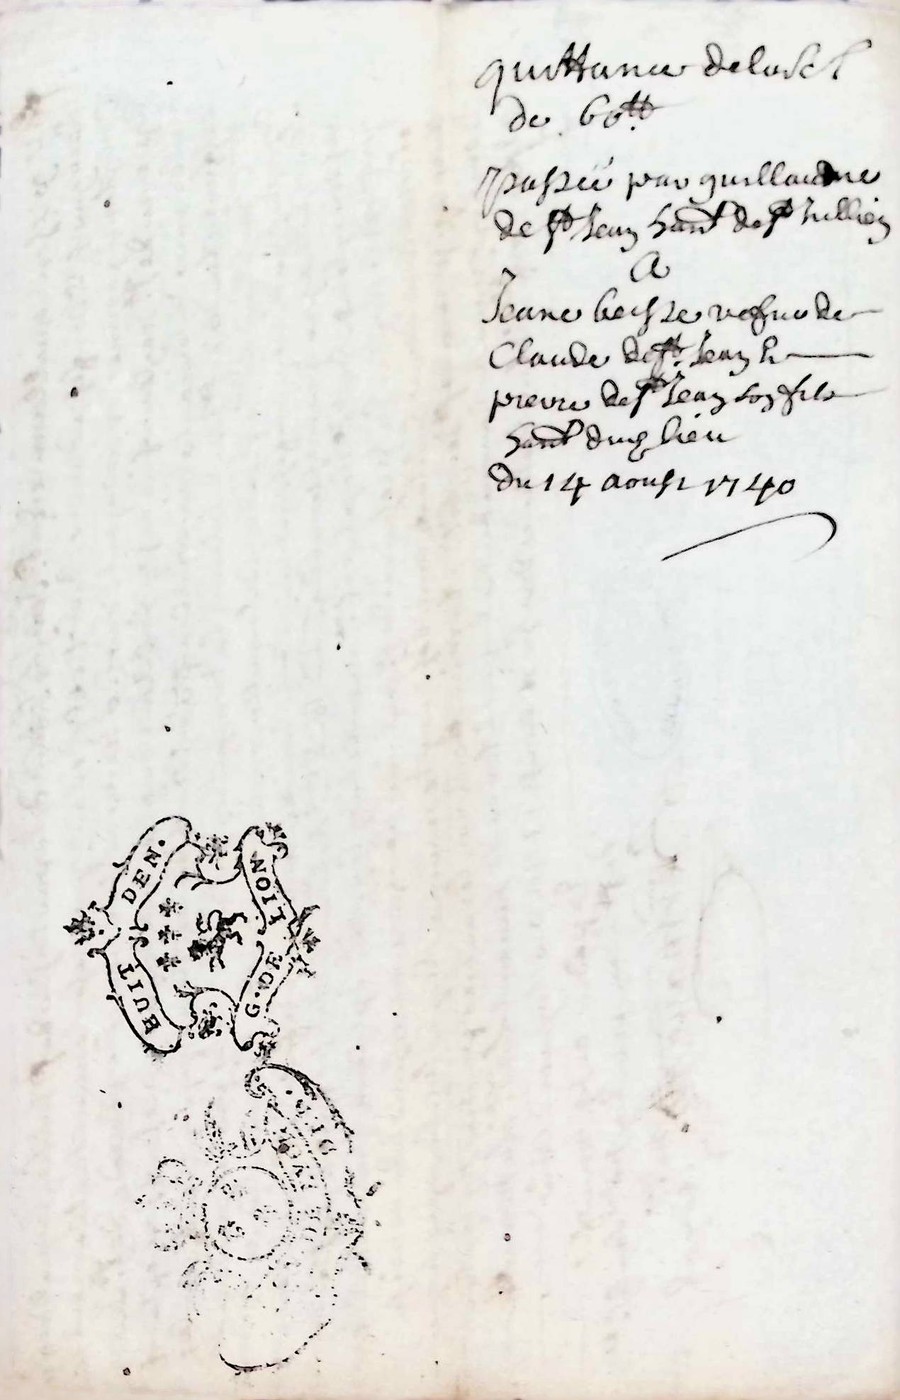 quittance
de 60tt
passée par guillaume
de st Jean hant de st Jullien
A
Jeane beysse vefve de
Claude de st Jean &
pierre de st Jean son fils
hant dud lieu
du 14 aoust 1740
HUIT DEN.
G. DE LION